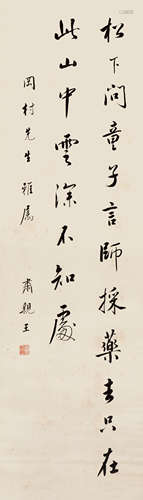 松下問童子言師採藥去只在
此山中雲深不知處
岡村先生雅属
肅親王